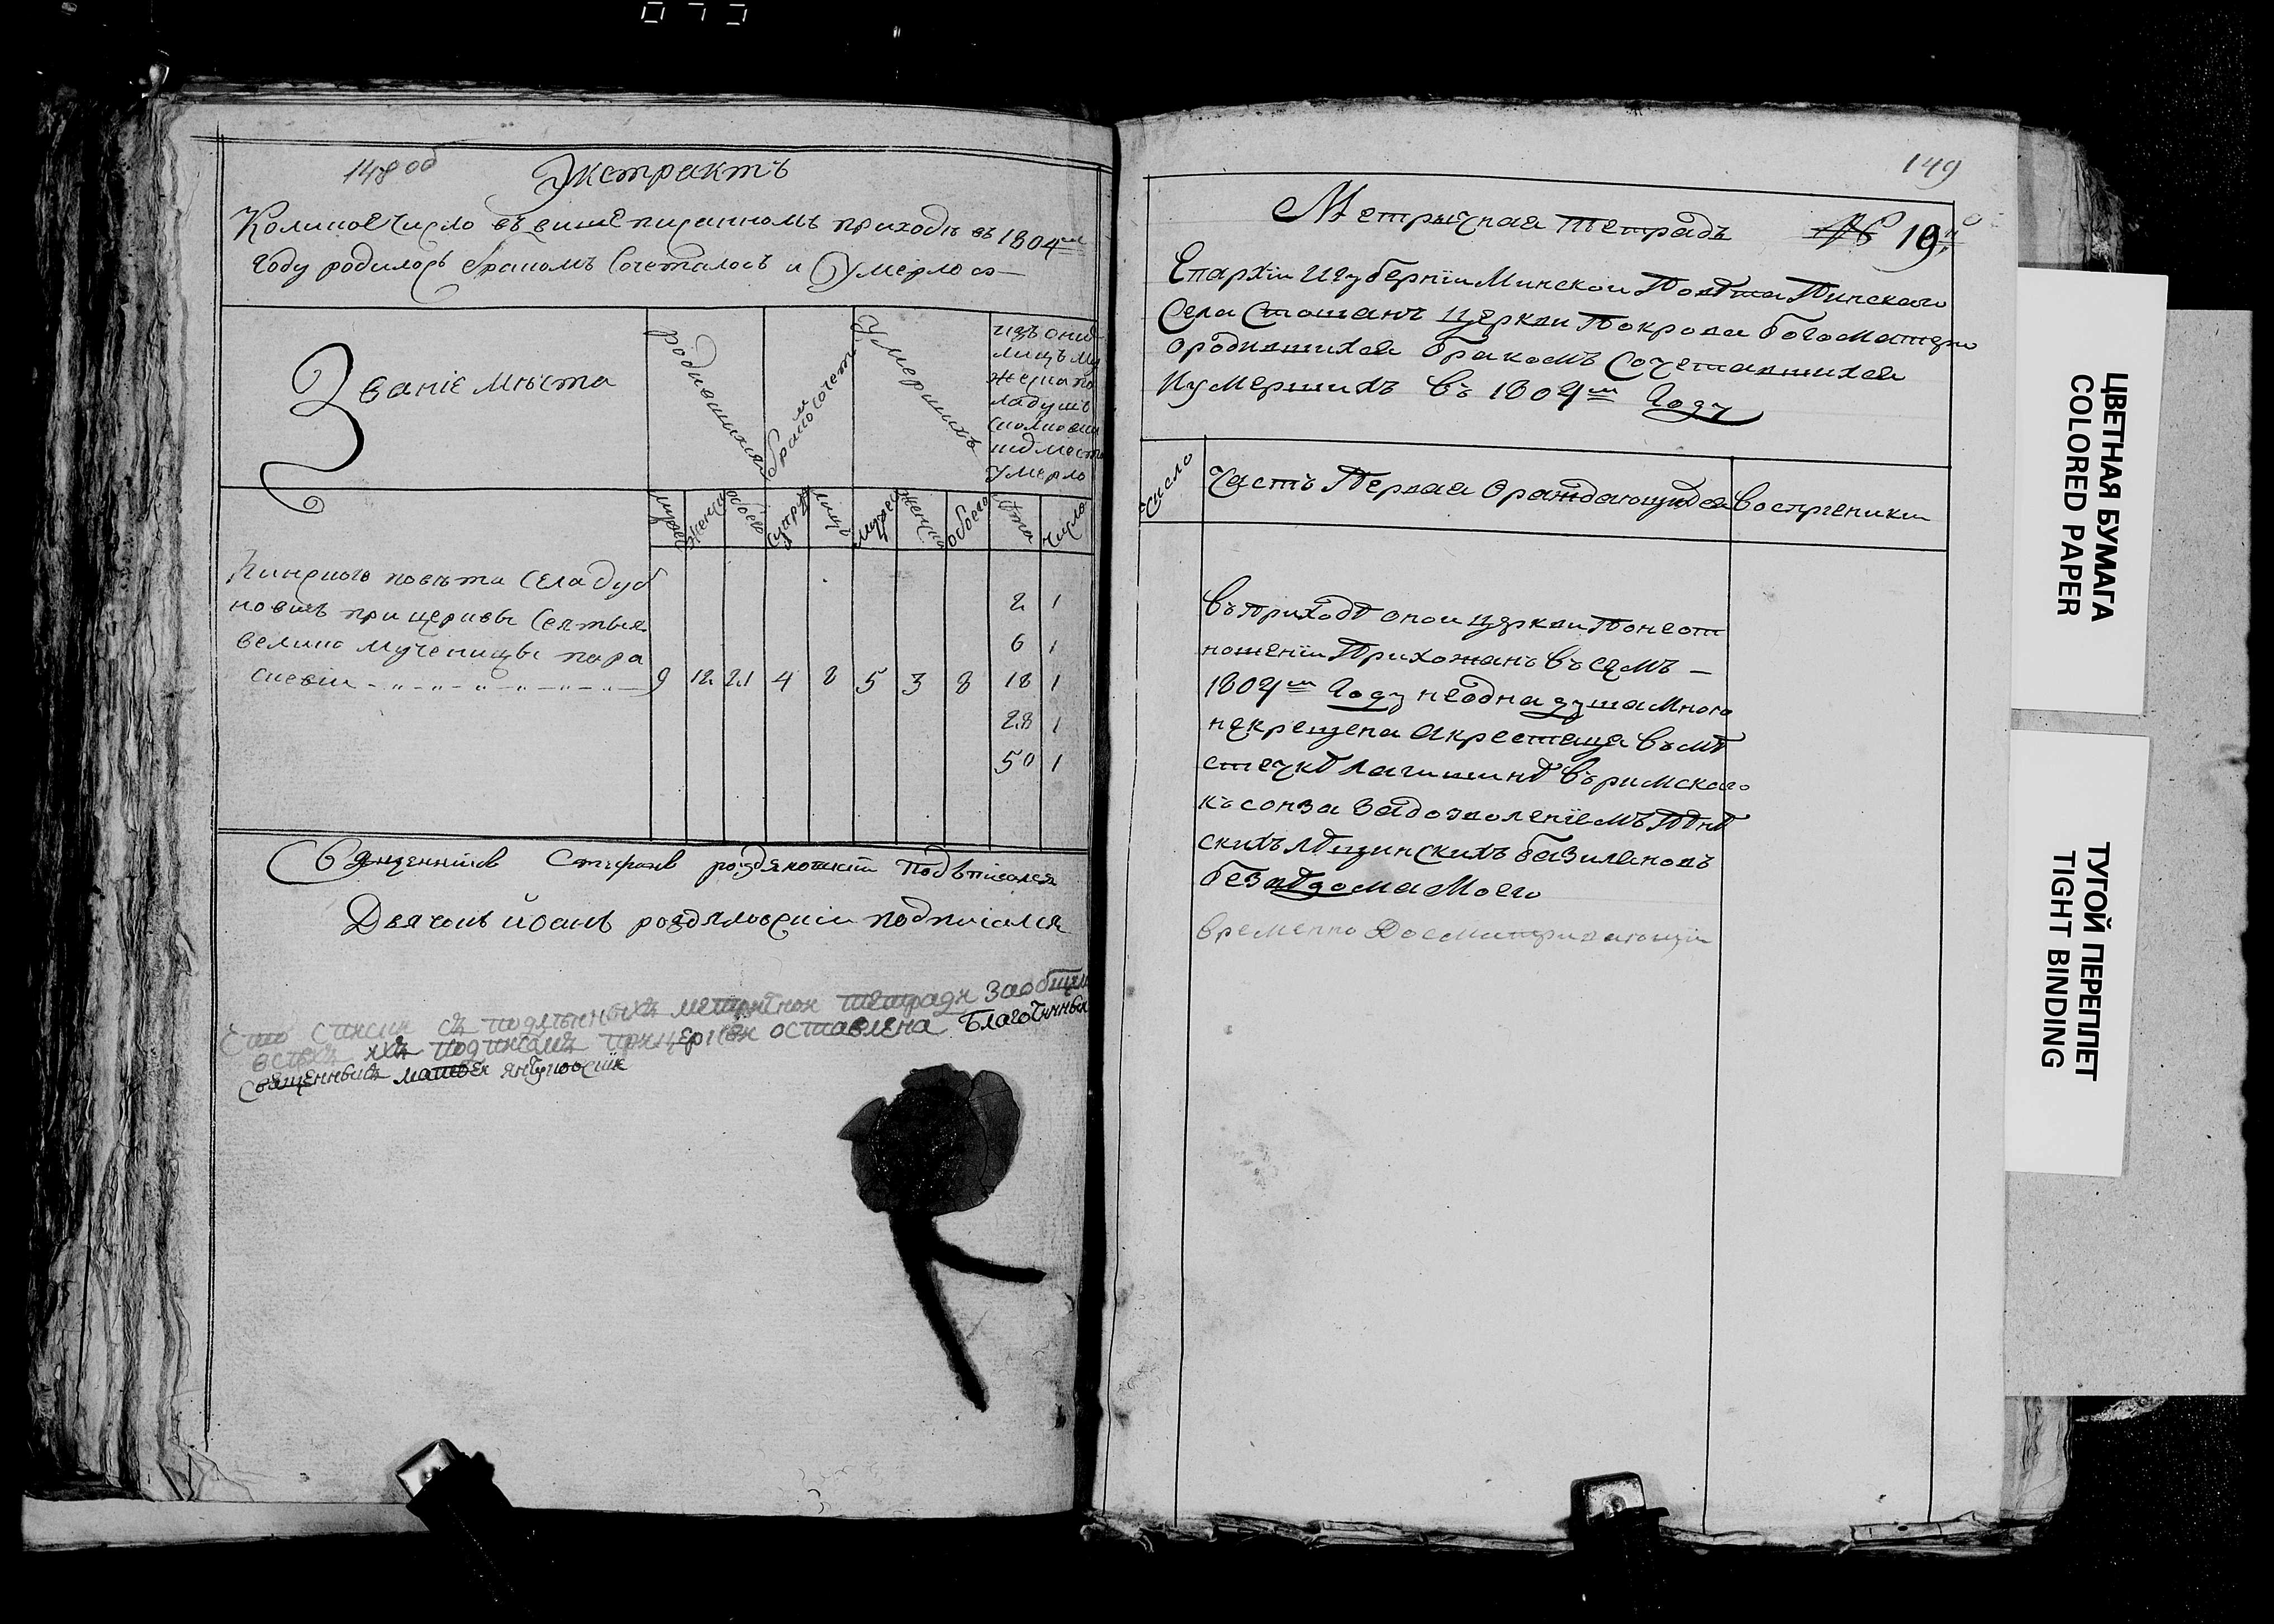 148 об
Экстрактъ
Коликое число въ вишеписанномъ приходѣ въ 1804мъ
Году родилось бракомъ сочеталось и Умерлось
Званіе мѣста
родившихся
бракомъ сочет
Умершихъ
изъ оних
лицъ му
жеска по
ла душъ
сколко въ
Умерло
мужес
женск
обоего
супруж
лицъ
мужес
женско
обоего
лѣта
число
Пинского повѣта Села Дуб
новичъ при церквы Святыя
велико мученицы пара
скевіи
9 12 21 4 8 5 3 8
2 1
6 1
18 1
28 1
50 1
Священникъ Стефанъ роздяловскій подъписался
Дьячокъ йоанъ роздяловскій подписался
Что списик съ подлинныхъ метритнои тетради за общим
всехъ ихъ подписамъ при церкви оставлена Благочинный
Священникъ матвеи янушовскіи
149
Метрычная тетрадь № 19й
Епархіи и Губерніи Минской Повѣта Пинскаго
Села Стошанъ Церкви Покрова Богоматери
О родившихся бракомъ Сочетавшихся
И умершихъ Въ 1804мъ Году
Число
Часть Первая О раждающихся
Востпрепники
Въ Приходѣ оной церкви По неот
ношеніи Прихожанъ въ семъ
1804мъ Году не одна душа Мною
некрещена а крестеща Въ мѣ
стечкѣ Лагишинѣ Въ римскаго
ксонза За дозволеніемъ Пѣн
скихъ Лѣщинскихъ базиляновъ
без вѣдома Моего
Временно Досматривающій
ЦВЕТНАЯ БУМАГА
COLORED PAPER
ТУГОЙ ПЕРЕПЛЕТ
TIGHT BINDING